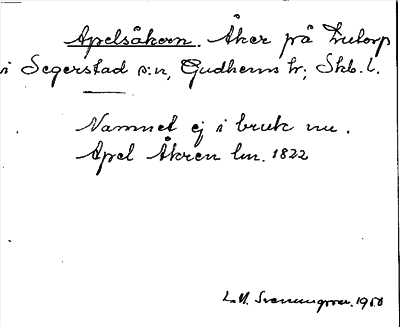 Apelsåkern. Åker på
i Segerstad s:n, Gudhems hr; Skb. l.
Namnet ej i bruk nu.
Apel Åkren lm. 1822
1950